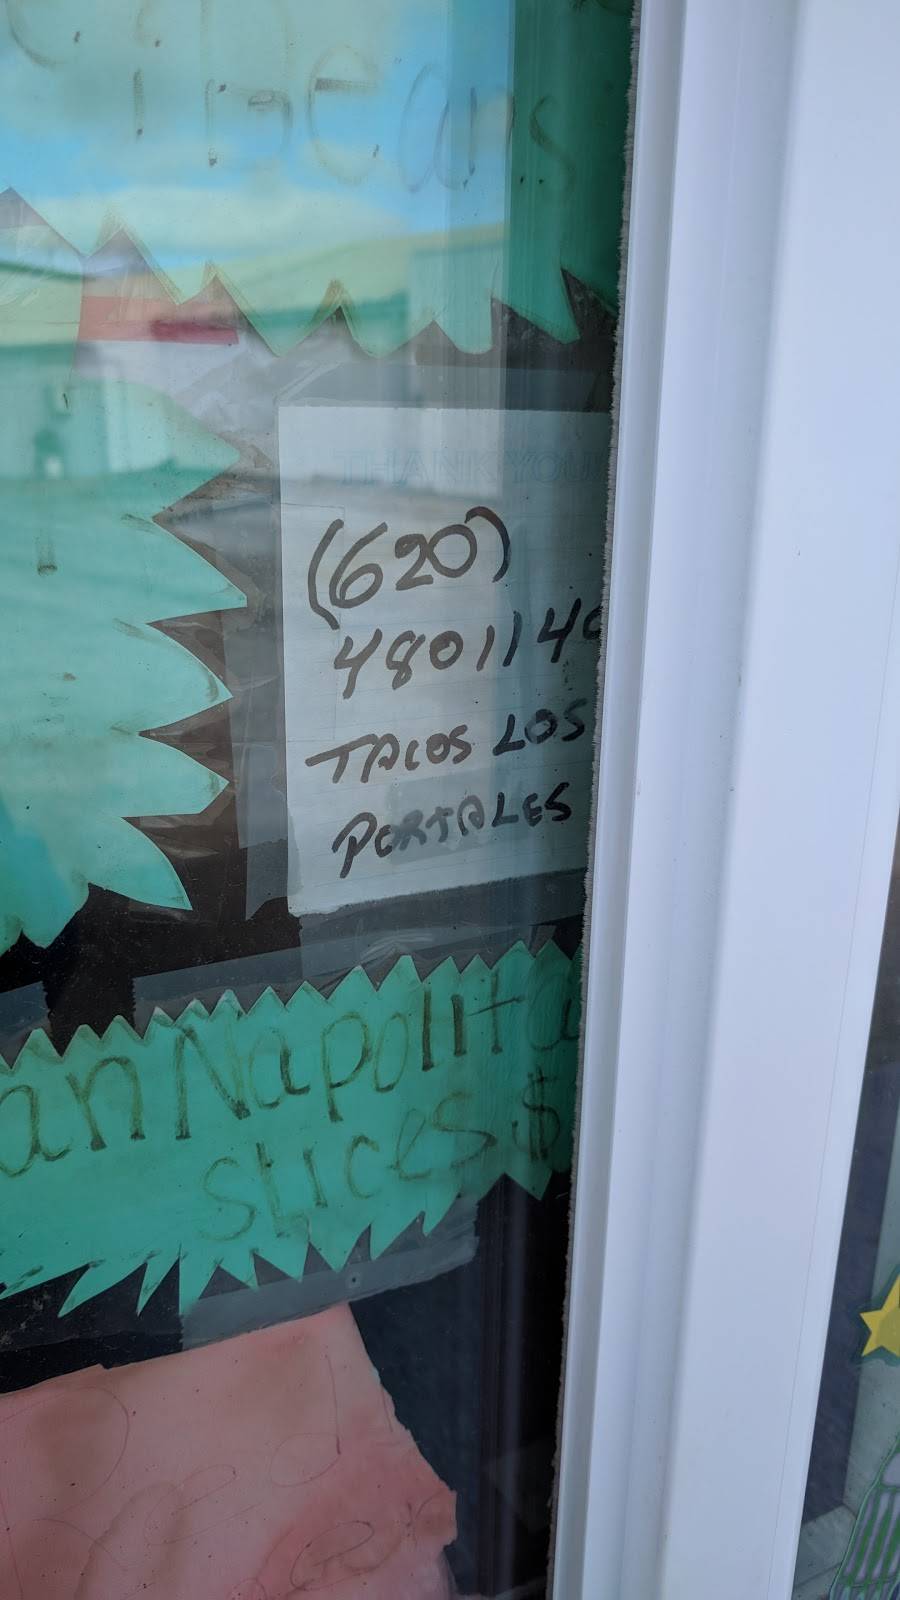 Beans
THANK YOU
(620)
480114
TACOS LOS
PORTALES
an Napolita
slices $